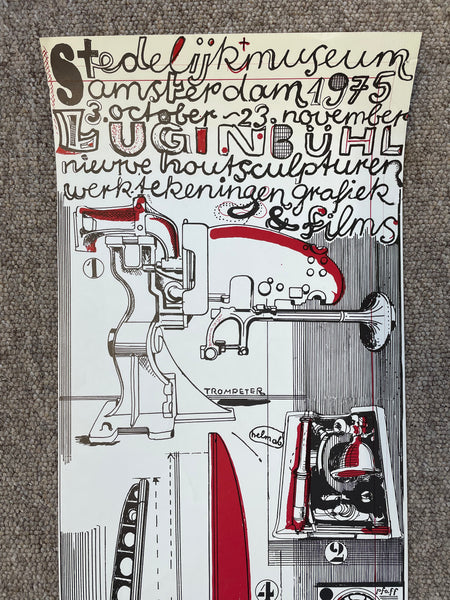 Stedelijkmuseum
amsterdam 1975
3. october ~ 23. november
LUGINBÜHL
nieuwe houtsculpturen
werktekeningen grafiek
& films
1
TROMPETER
helmab
2
4
pfaff